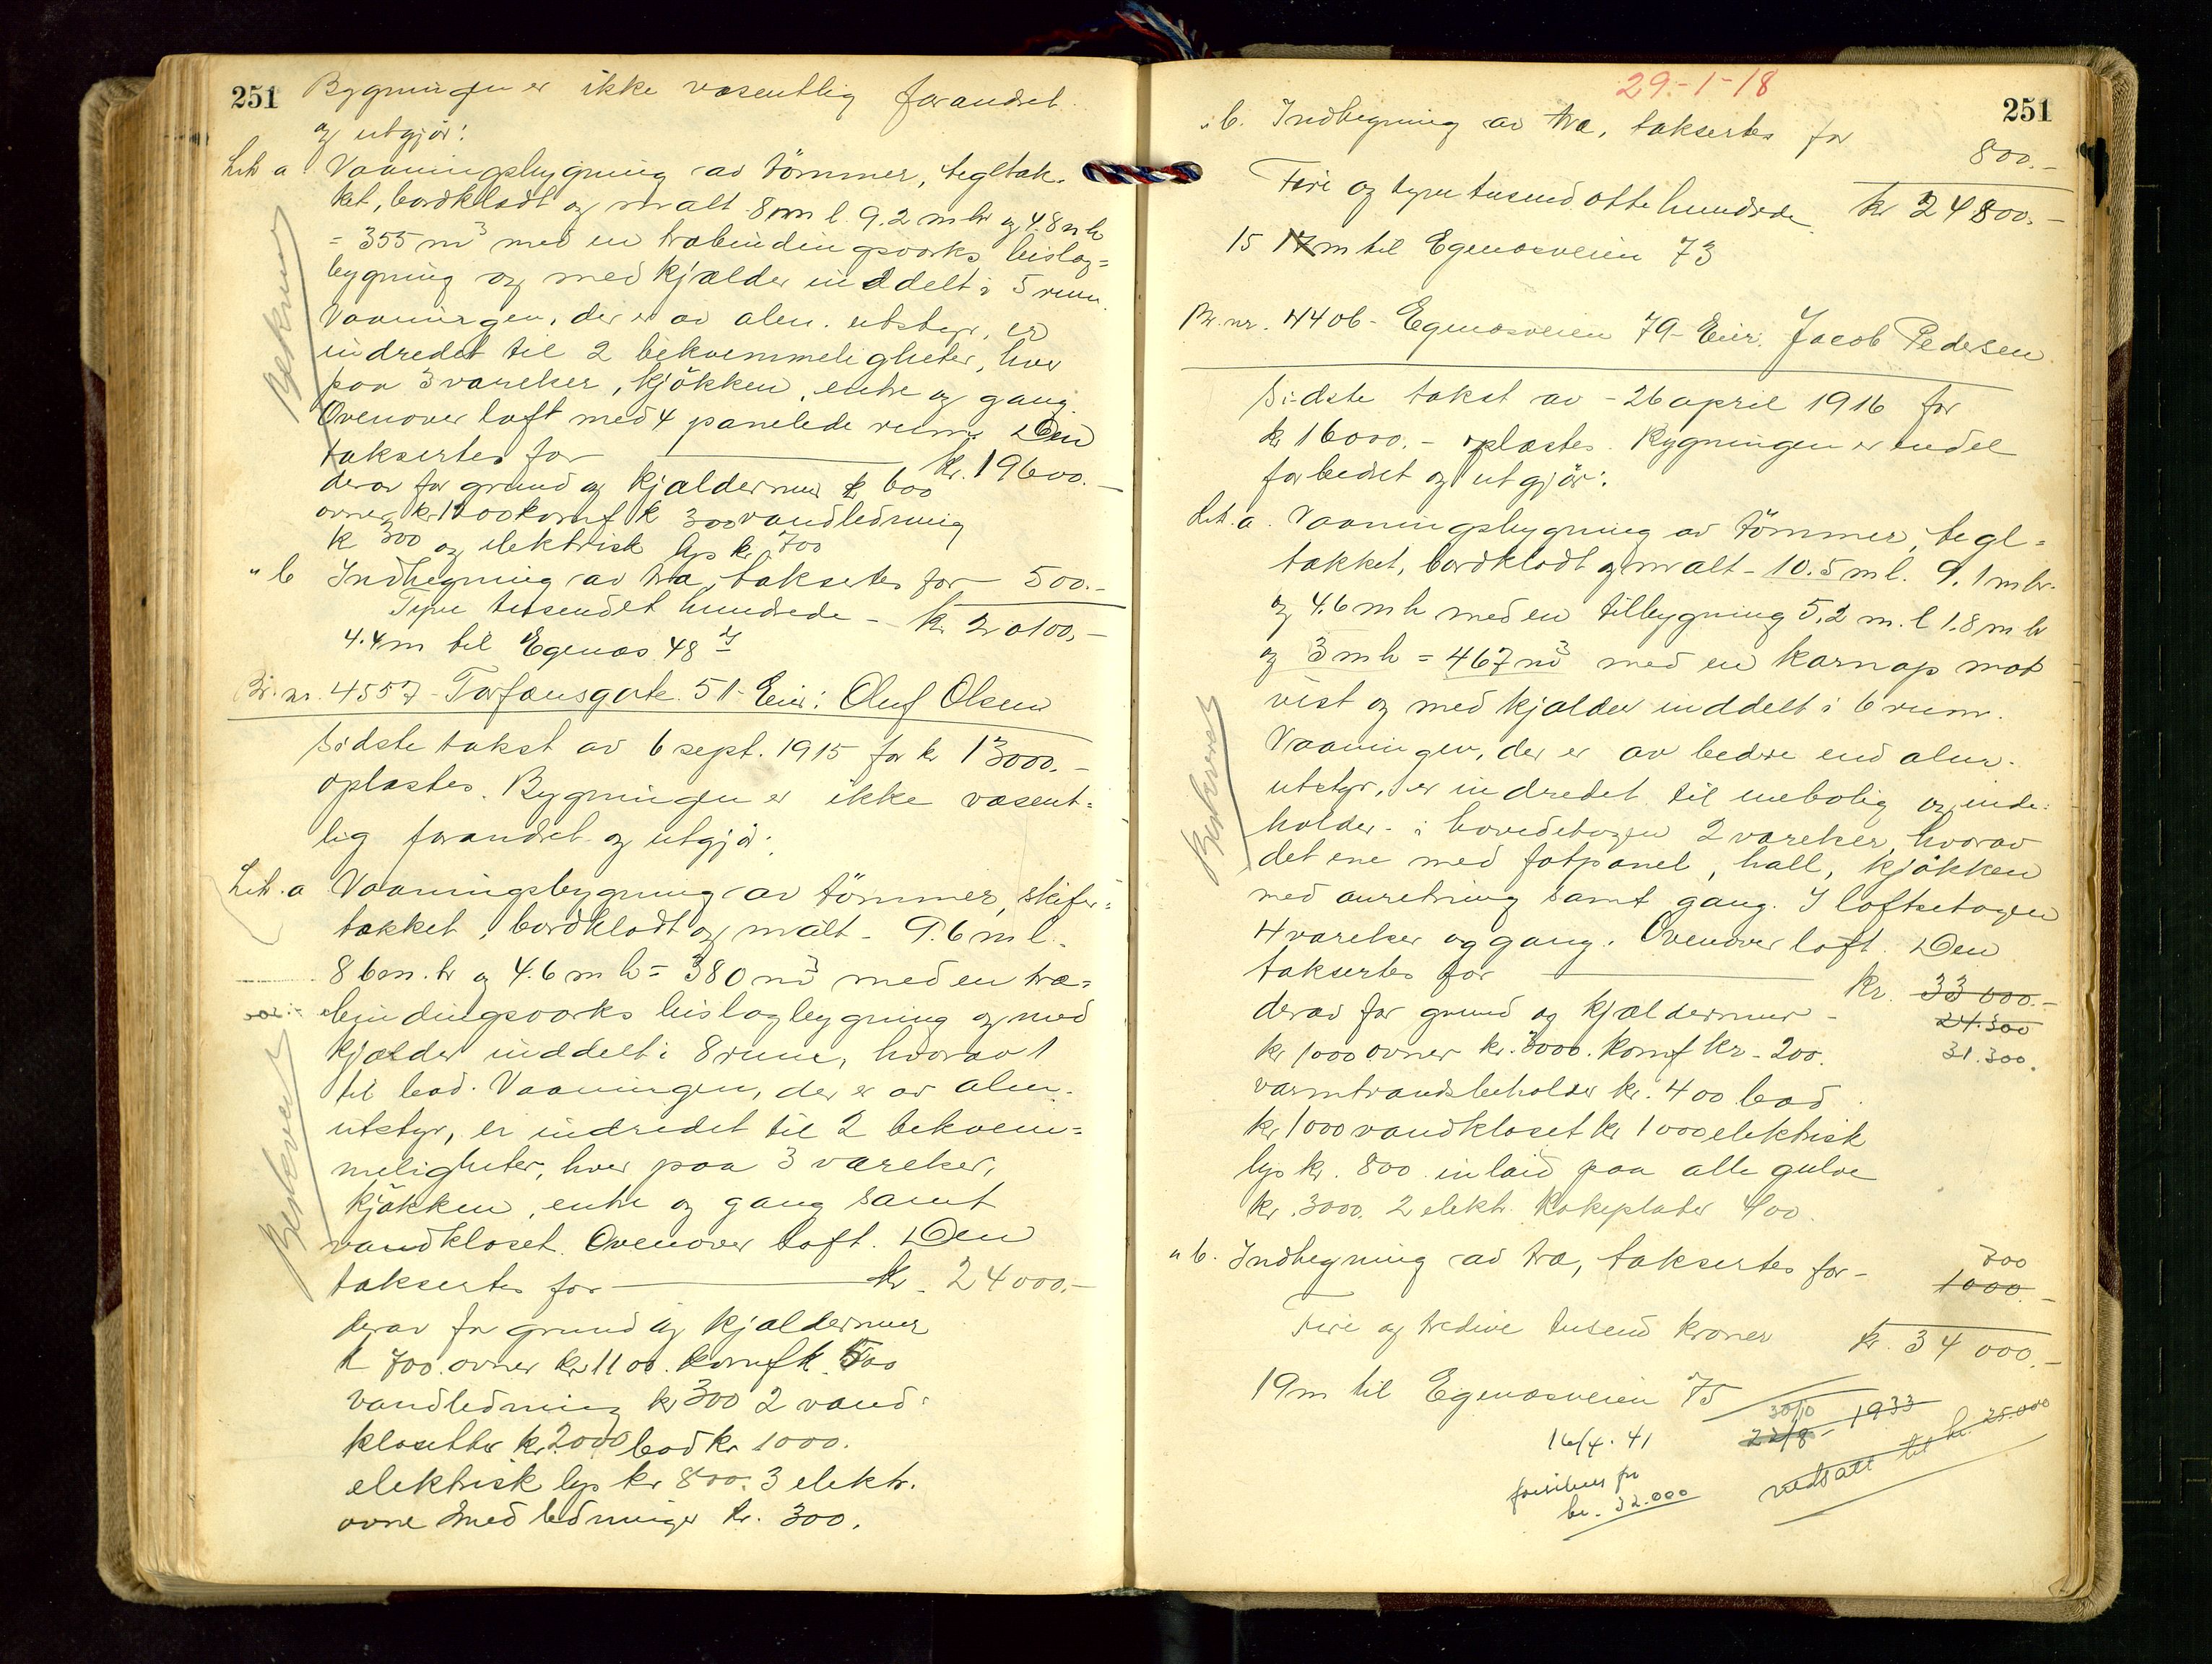 251
Bygningen er ikke væsentlig forandret
og utgjør:
Litr a Vaaningsbygning av tömmer, tegltak-
ket, bordklædt og malt 8 m l. 9.2 m br og 4.8 m h
= 355 m3 med en træbindingsværks bislag=
bygning og med kjælder inddelt i 5 rum
Vaaningen, der er av alm. utstyr, er
indredet til 2 bekvemmeligheter, hver
paa 3 værelser, kjökken, entre og gang.
Ovenover loft med 4 panelede rum. Den
taksertes for kr. 19600.-
derav for grund og kjældermur kr 600
ovner kr 1200 komf k 300 vandledning
k 300 og elektrisk lys kr 700
" b Indhegning av træ, taksertes for 500.-
Tyve tusend et hundrede - kr. 20100.-
4.4 m til Egenæs 48 y
Br. nr. 4557 - Torfæusgate 51 - Eier: Oluf Olsen
Sidste takst av 6 sept. 1915 for kr 13000.-
oplæstes. Bygningen er ikke væsent=
lig forandret og utgjør:
Litr. a Vaaningsbygning av tömmer, skifer=
takket, bordklædt og malt - 9.6 m l.
8 6 m. br og 4.6 m h = 380 m3 med en træ=
bindingsværks bislagbygning og med
kjælder inddelt i 8 rum, hvorav 1
til bad. Vaaningen, der er av alm.
utstyr, er indredet til 2 bekvem=
meligheter, hver paa 3 værelser,
kjökken, entre og gang samt
vandkloset. Ovenover loft. Den
taksertes for kr. 24000.-
derav for grund og kjældermur
k 700. ovner kr 1100. komf k. 500
vandledning kr 300 2 vand=
klosetter kr. 2000 bad kr 1000.
elektrisk lys kr 800. 3 elektr.
ovne med ledninger kr. 300.
Beskrevet
29-1-18
251
" b. Indhegning av træ, taksertes for 800.-
Fire og tyve tusend otte hundrede kr 24800.-
15 17 m til Egenæsveien 73
Br. nr. 4406 - Egenæsveien 79 - Eier: Jacob Pedersen
Sidste takst av - 26 april 1916 for
kr 16000.- oplæstes. Bygningen er endel
forbedret og utgjör:
Litr. a. Vaaningsbygning av tömmer, tegl=
takket, bordklædt og malt - 10.5 m l. 9.1 m br.
og 4.6 m h med en tilbygning 5.2 m. l 1.8 m br
og 3 m h = 467 m3 med en karnap mot
vest og med kjælder inddelt i 6 rum.
Vaaningen, der er av bedre end alm.
utstyr, er indredet til enebolig og inde=
holder i hovedetagen 2 værelser, hvorav
det ene med fotpanel, hall, kjökken
med anretning samt gang. I loftsetagen
4 værelser og gang. Ovenover loft. Den
taksertes for kr. 33000.-
24.300
31.300.
derav for grund og kjældermur -
kr 1000 ovner kr. 3000. Komf kr - 200.
varmtvandsbeholder kr. 400 bad
kr 1000 vandkloset kr 1000 elektrisk
lys kr. 800 inlaid paa alle gulve
kr. 3000. 2 elektr. Kokeplater 400.
Beskrevet
" b. Indhegning av træ, taksertes for - 700
1000.-
Fire og tredive tusend kroner kr. 34000.-
19 m til Egenæsveien 75
30/10
22/8 - 1933
nedsatt til kr. 25.000
16/4. 41
kr. 32.000